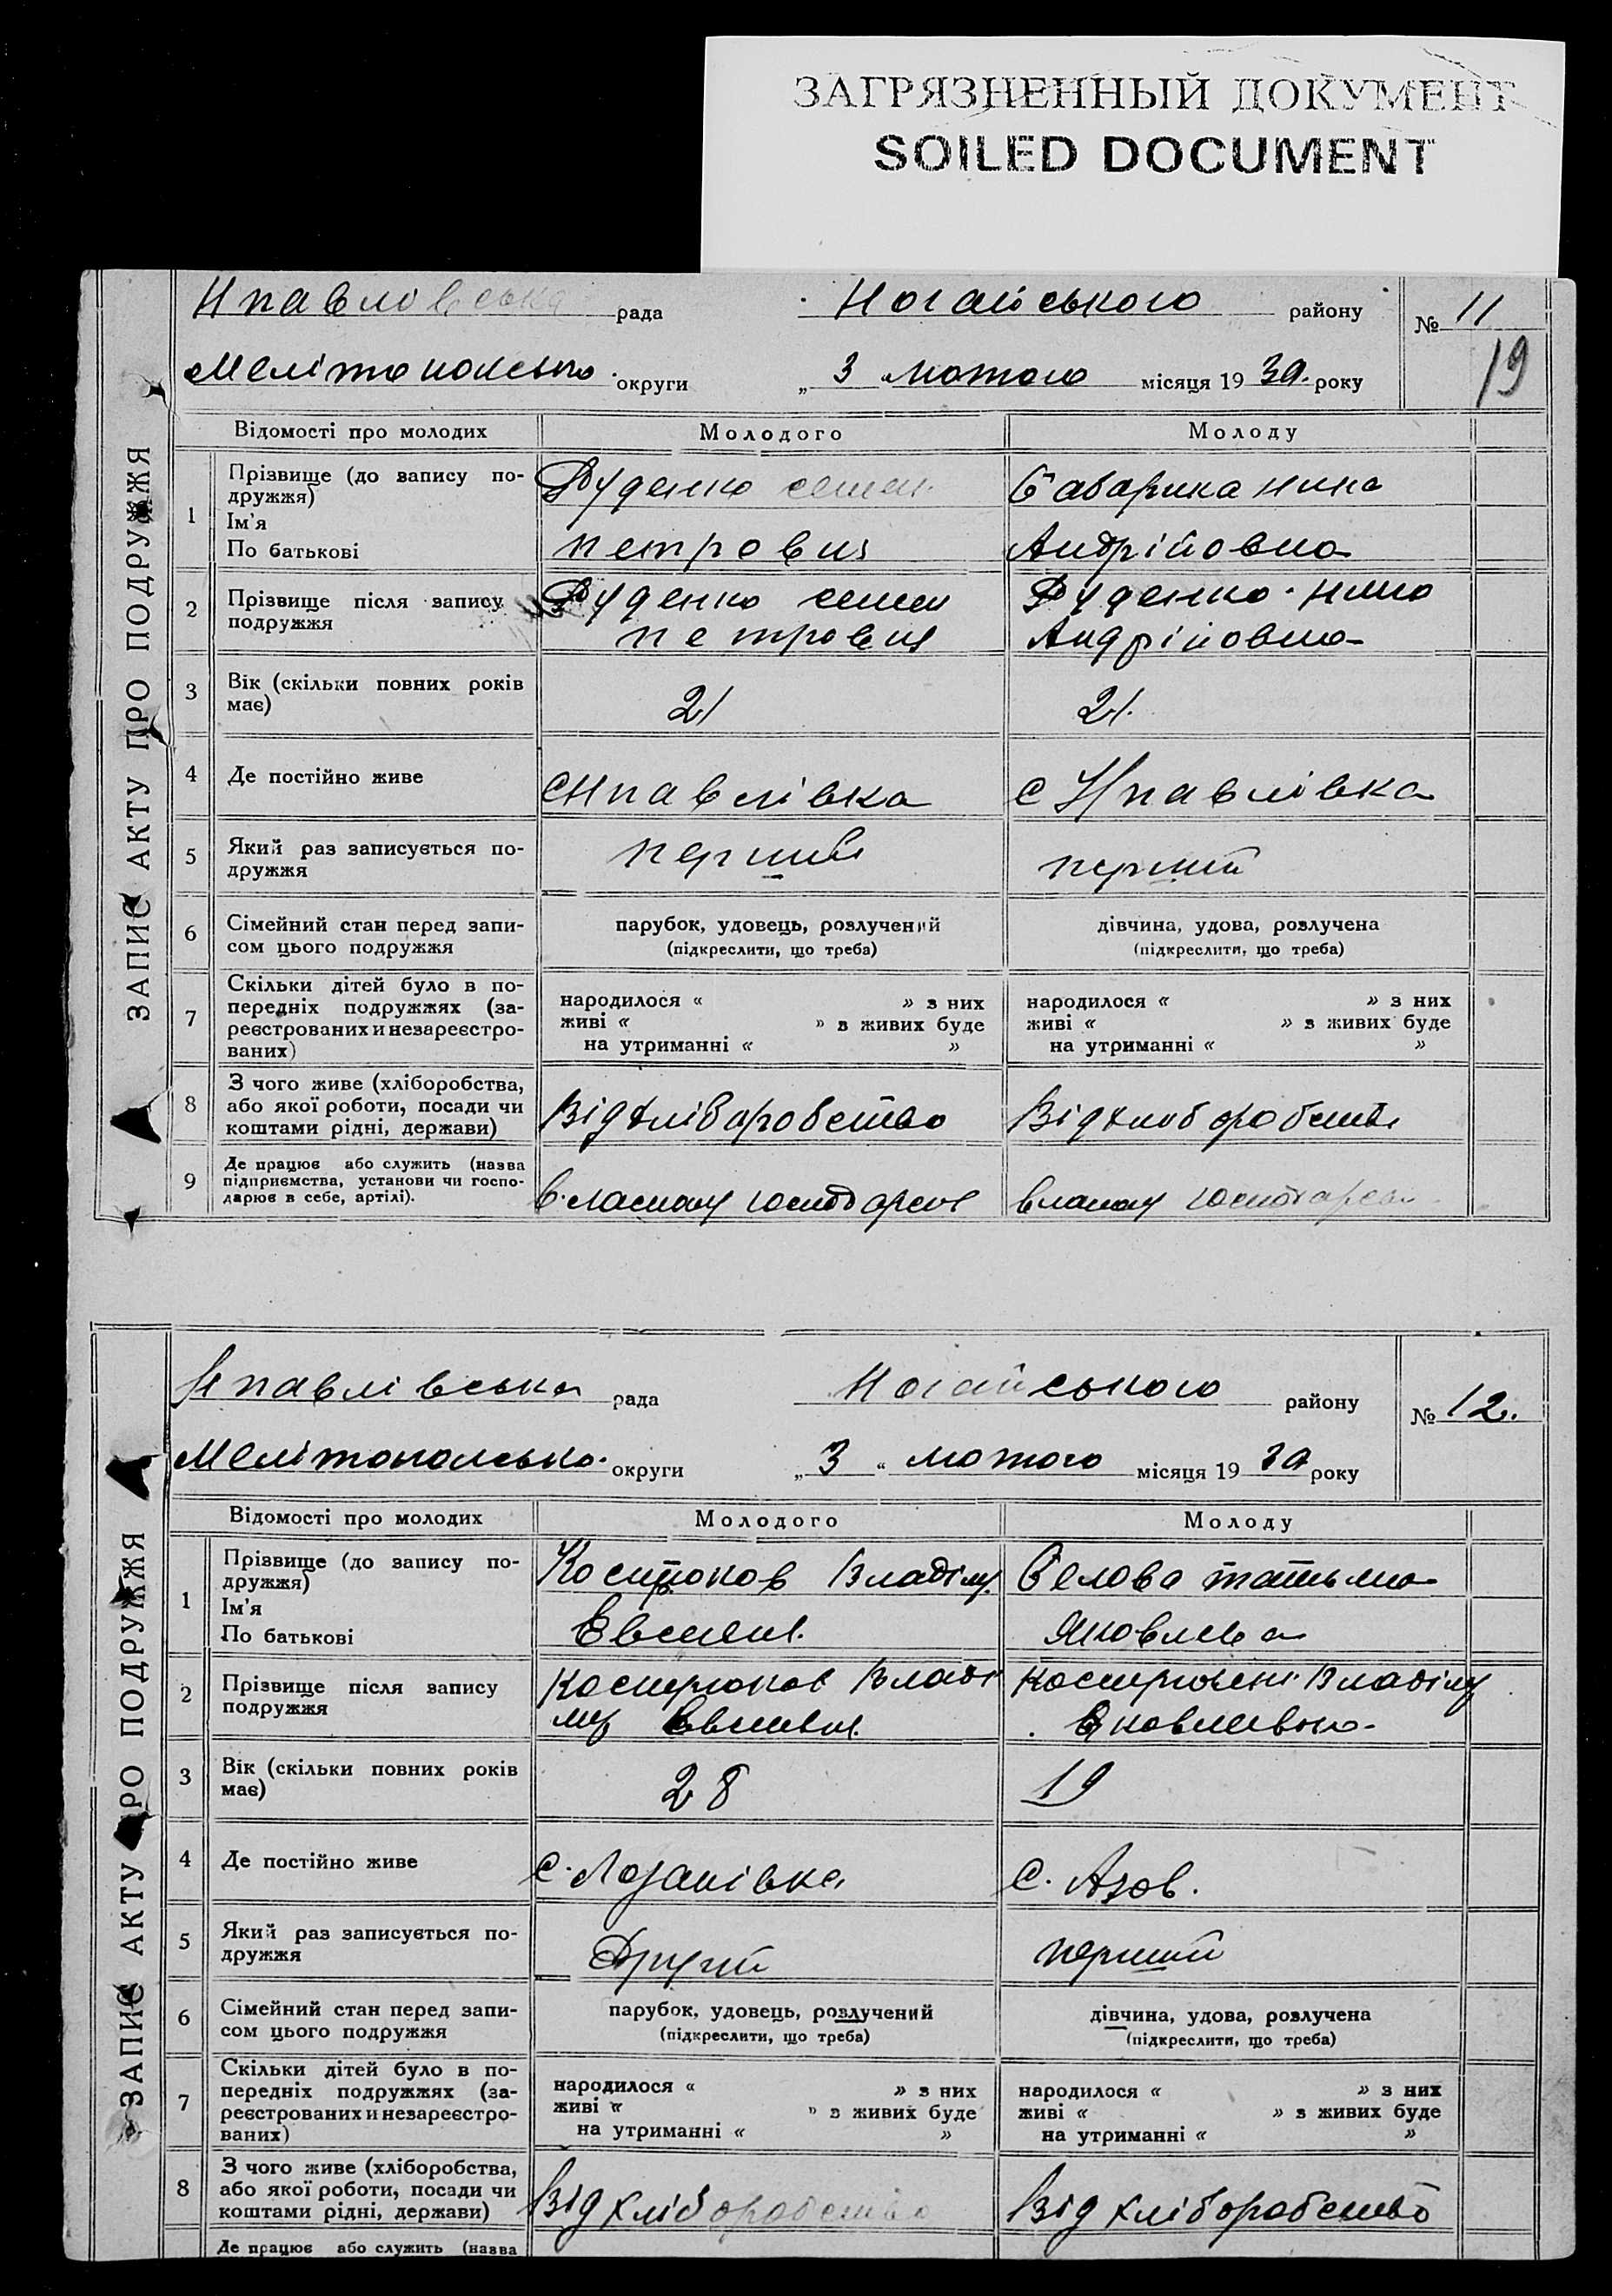 ЗАГРЯЗНЕННЫЙ ДОКУМЕНТ
SOILED DOCUMENT
Нпавловська рада Ногайського району № 11
19
Мелітопольсько округи „ 3 “ лютого місяця 19 30. року
ЗАПИС АКТУ ПРО ПОДРУЖЖЯ
Відомості про молодих Молодого Молоду
1 Прізвище (до запису по-
дружжя)
Ім’я
По батькові
Руденко семен
петрович
Нина
Андрійовна
2 Прізвище після запису
подружжя
Руденко семен
петрович
Руденко Нина
Андрійовна
3 Вік (скільки повних років
має)
21 21.
4 Де постійно живе с Нпавлівка с Нпавлівка
5 Який раз записується по-
дружжя
перший перший
6 Сімейний стан перед запи-
сом цього подружжя
парубок, удовець, розлучений
(підкреслити, що треба)
дівчина, удова, розлучена
(підкреслити, що треба)
7 Скільки дітей було в по-
передніх подружжях (за-
реєстрованих и незареєстро-
ваних)
народилося « » з них
живі « » з живих буде
на утриманні « »
народилося « » з них
живі « » з живих буде
на утриманні « »
8 З чого живе (хліборобства,
або якої роботи, посади чи
коштами рідні, держави)
Від хліборобство Від хлоборобства
9 Де працює або служить (назва
підприємства, установи чи госпо-
дарює в себе, артілі).
власному господарсві власному господарсві
Нпавлівська рада Ногайського району № 12.
Мелітопольсько. округи „ 3 “ лютого місяця 19 30 року
ЗАПИС АКТУ ПРО ПОДРУЖЖЯ
Відомості про молодих Молодого Молоду
1 Прізвище (до запису по-
дружжя)
Ім’я
По батькові
Костюков Владімір
Евсеев.
Белова татьяна
Яковлева
2 Прізвище після запису
подружжя
Костюков Владі
мір
Владімір
Яковлевна
3 Вік (скільки повних років
має)
28 19
4 Де постійно живе с. Лозанівка с. Азов.
5 Який раз записується по-
дружжя
Другий перший
6 Сімейний стан перед запи-
сом цього подружжя
парубок, удовець, розлучений
(підкреслити, що треба)
дівчина, удова, розлучена
(підкреслити, що треба)
7 Скільки дітей було в по-
передніх подружжях (за-
реєстрованих и незареєстро-
ваних)
народилося « » з них
живі « » з живих буде
на утриманні « »
народилося « » з них
живі « » з живих буде
на утриманні « »
8 З чого живе (хліборобства,
або якої роботи, посади чи
коштами рідні, держави)
Від хліборобство Від хліборобство
Де працює або служить (назва